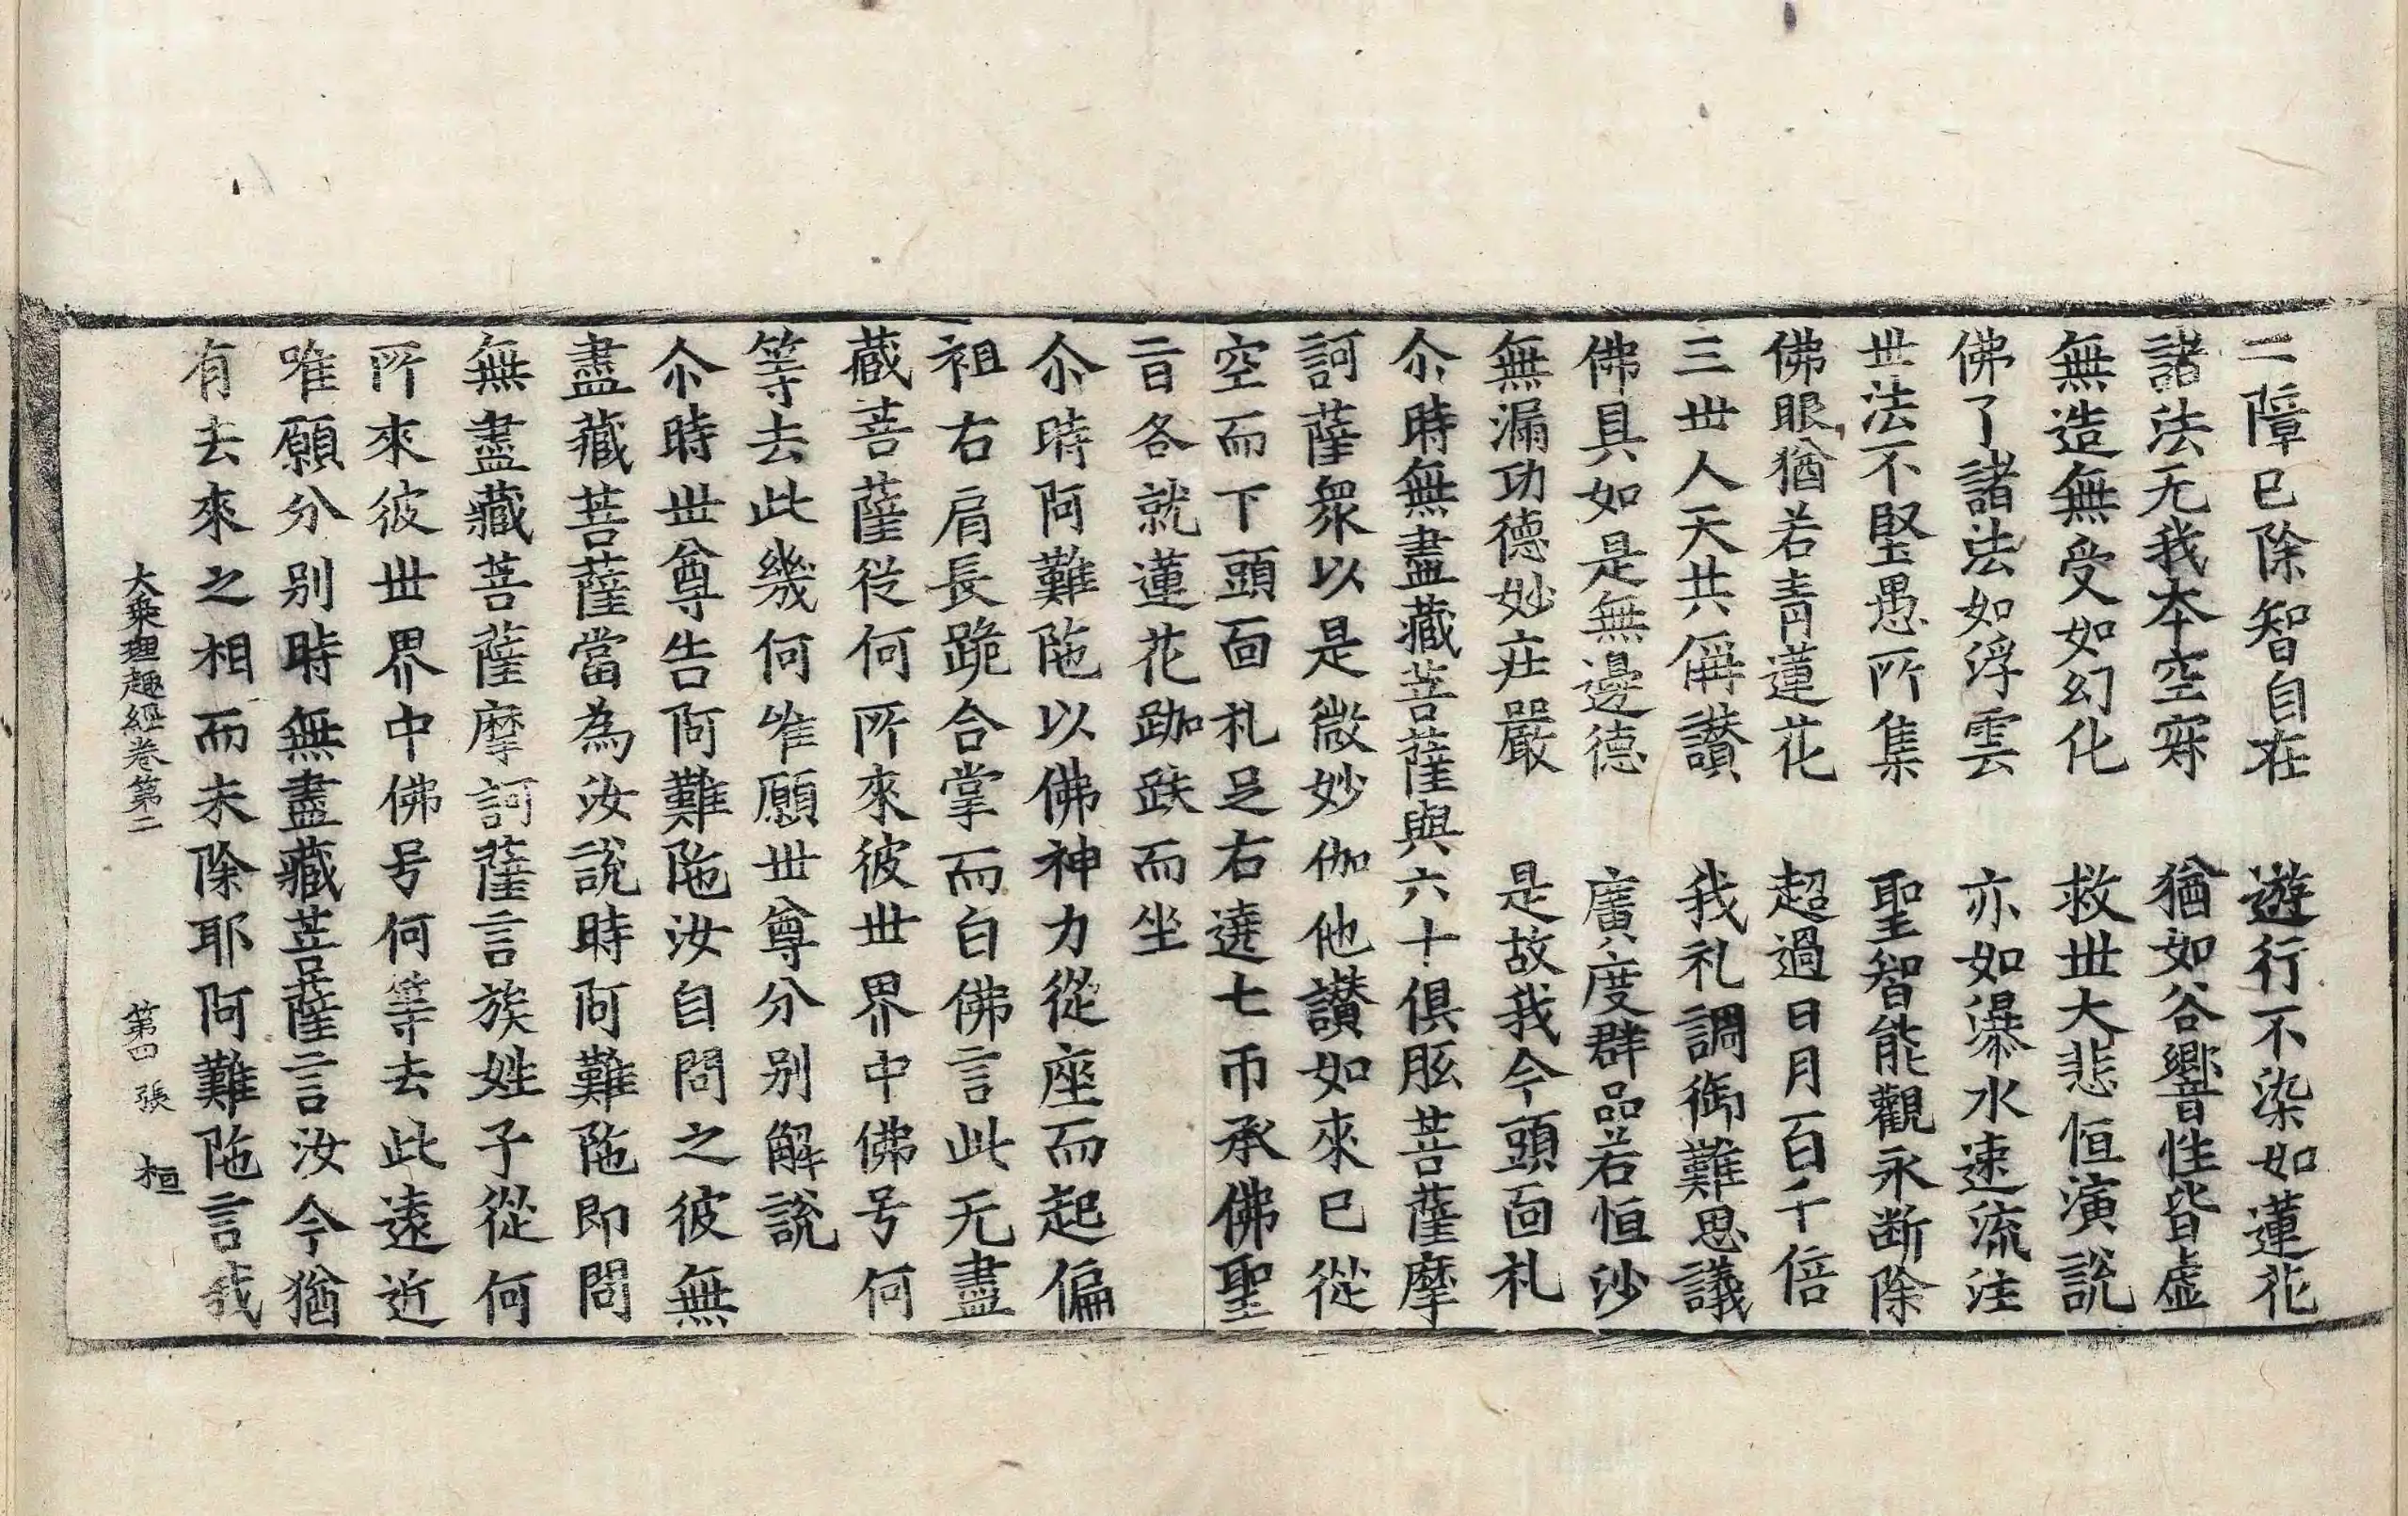 二障已除智自在　遊行不染如蓮花
諸法无我本空寂　猶如谷響性皆虛
無造無受如幻化　救世大悲恒演說
佛了諸法如浮雲　亦如瀑水速流注
世法不堅愚所集　聖智能觀永断除
佛眼猶若青蓮花　超過日月百千倍
三世人天共稱讃　我礼調御難思議
佛具如是無邊德　廣度群品若恒沙
無漏功德妙莊嚴　是故我今頭面礼
尒時無盡藏菩薩與六十俱胝菩薩摩
訶薩衆以是微妙伽他讃如來已從
空而下頭面礼足右遶七帀承佛聖
旨各就蓮花跏趺而坐
尒時阿難陁以佛神力從座而起偏
袒右肩長跪合掌而白佛言此无盡
蔵菩薩從何所來彼世界中佛号何
等去此幾何唯願世尊分别解說
尒時世尊告阿難陁汝自問之彼無
盡藏菩薩當為汝說時阿難陁即問
無盡藏菩薩摩訶薩言族姓子從何
所來彼世界中佛号何等去此遠近
唯願分别時無盡藏菩薩言汝今猶
有去來之相而未除耶阿難陁言我
大乘理趣經卷第二　第四張　桓